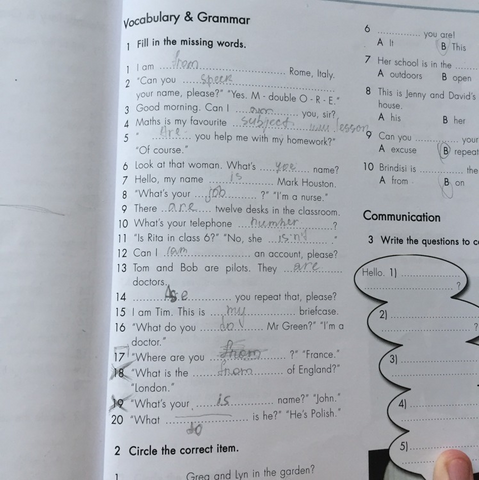 Vocabulary & Grammar
1 Fill in the missing words.
1 I am from Rome, Italy.
2 "Can you speek
your name, please?" "Yes. M - double O - R - E."
3 Good morning. Can I you, sir?
4 Maths is my favourite subject lesson
5 "Are you help me with my homework?"
"Of course."
6 Look at that woman. What's you name?
7 Hello, my name is Mark Houston.
8 "What's your job ?" "I'm a nurse."
9 There are twelve desks in the classroom.
10 What's your telephone number ?
11 "Is Rita in class 6?" "No, she isint ."
12 Can I am an account, please?
13 Tom and Bob are pilots. They are
doctors.
14 you repeat that, please?
15 I am Tim. This is my briefcase.
16 "What do you do Mr Green?" "I'm a
doctor."
17 "Where are you from ?" "France."
18 "What is the from of England?"
"London."
19 "What's your is name?" "John."
20 "What is he?" "He's Polish."
do
2 Circle the correct item.
1 Greg and Lyn in the garden?
6 you are!
A It B This
7 Her school is in the
A outdoors B open
8 This is Jenny and David's
house.
A his B her
9 Can you your
A excuse B repeat
10 Brindisi is the
A from B on
Communication
3 Write the questions to
Hello. 1)
?
2)
?
3)
4)
5)